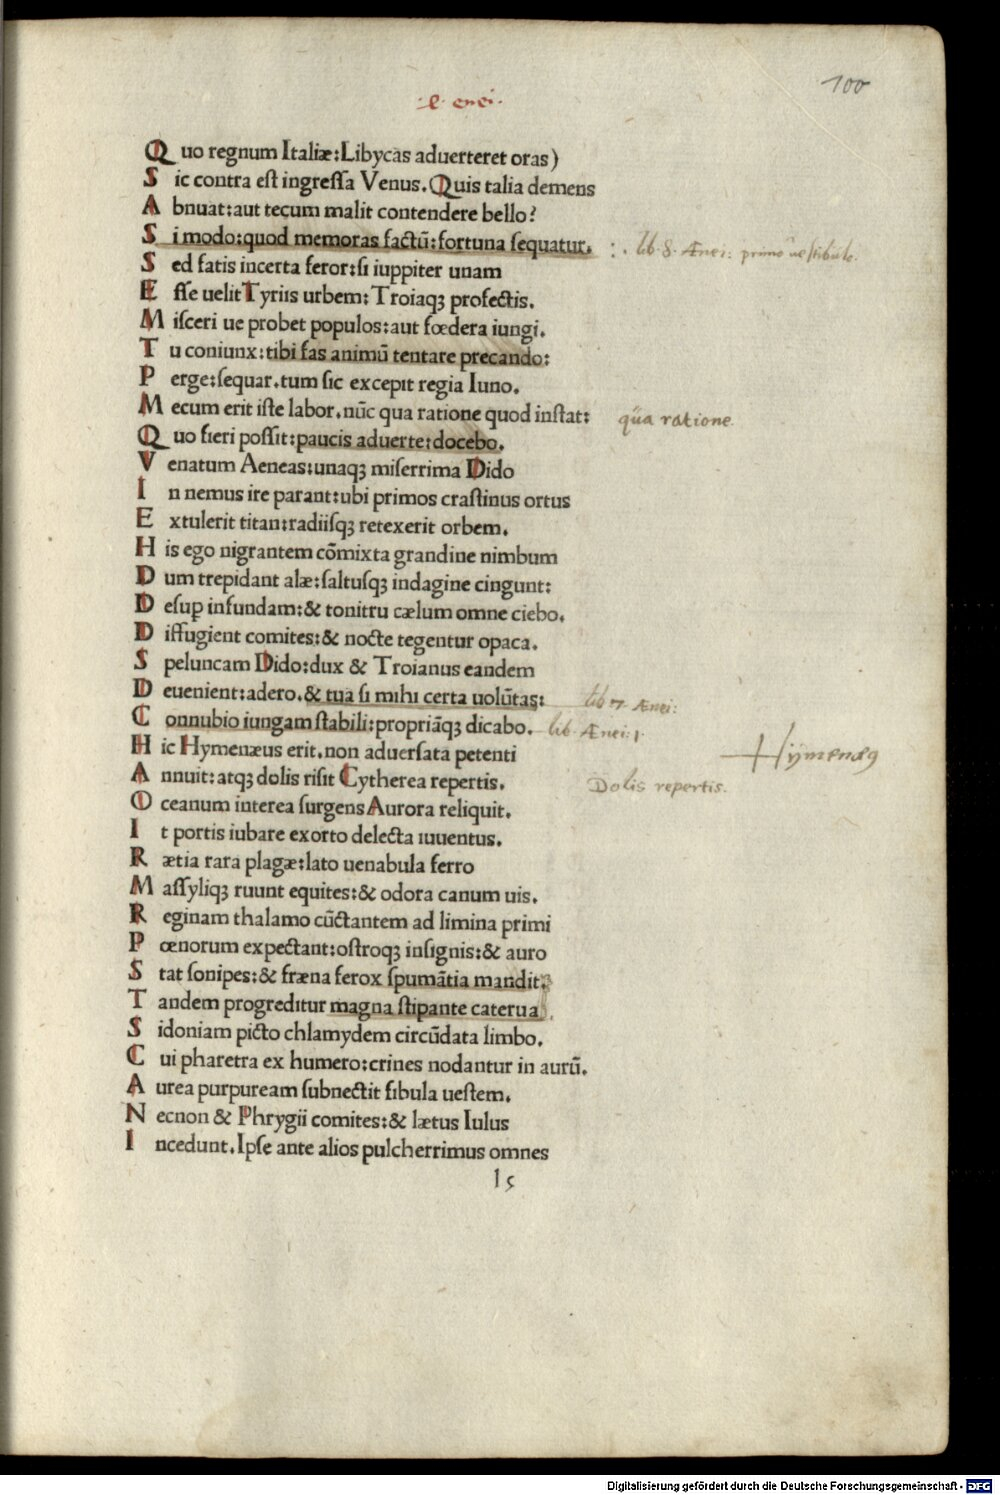 100
enei.
Quo regnum Italiæ:Libycas aduerteret oras)
Sic contra est ingressa Venus.Quis talia demens
Abnuat:aut tecum malit contendere bello?
Si modo:quod memoras factũ:fortuna sequatur. :. lib 8. Ænei: primo uestibulo.
Sed fatis incerta feror:si iuppiter unam
Esse uelit Tyriis urbem:Troiaqꝫ profectis.
Misceri ue probet populos:aut fœdera iungi.
Tu coniunx:tibi fas animũ tentare precando:
Perge:sequar.tum sic excepit regia Iuno.
Mecum erit iste labor.nũc qua ratione quod instat: qua ratione
Quo fieri possit:paucis aduerte:docebo.
Venatum Aeneas:unaqꝫ miserrima Dido
In nemus ire parant:ubi primos crastinus ortus
Extulerit titan:radiisqꝫ retexerit orbem.
His ego nigrantem cõmixta grandine nimbum
Dum trepidant alæ:saltusqꝫ indagine cingunt:
Desuꝑ infundam:& tonitru cælum omne ciebo.
Diffugient comites:& nocte tegentur opaca.
Speluncam Dido:dux & Troianus eandem
Deuenient:adero.& tua si mihi certa uolũtas: lib 7. Ænei:
Connubio iungam stabili:propriãqꝫ dicabo. lib. Ænei:1.
Hic Hymenæus erit.non aduersata petenti Hymenæꝰ
Annuit:atqꝫ dolis risit Cytherea repertis. Dolis repertis.
Oceanum interea surgens Aurora reliquit.
It portis iubare exorto delecta iuuentus.
Rætia rara plagæ:lato uenabula ferro
Massyliqꝫ ruunt equites:& odora canum uis.
Reginam thalamo cũctantem ad limina primi
Pœnorum expectant:ostroqꝫ insignis:& auro
Stat sonipes:& fræna ferox spumãtia mandit.
Tandem progreditur magna stipante caterua
Sidoniam picto chlamydem circũdata limbo.
Cui pharetra ex humero:crines nodantur in aurũ.
Aurea purpuream subnectit fibula uestem.
Necnon & Phrygii comites:& lætus Iulus
Incedunt.Ipse ante alios pulcherrimus omnes
l 5
Digitalisierung gefördert durch die Deutsche Forschungsgemeinschaft - DFG